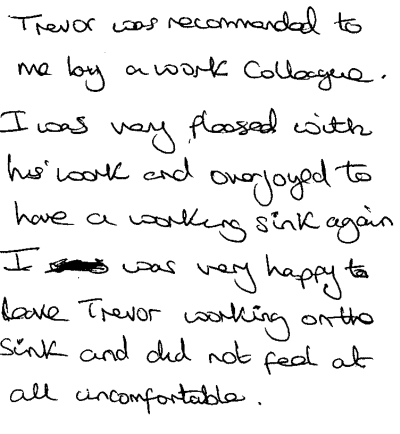 Trevor was recommended to
me by a work Colleague.
I was very pleased with
his work and overjoyed to
have a working sink again
I was very happy to
leave Trevor working on the
sink and did not feel at
all uncomfortable.